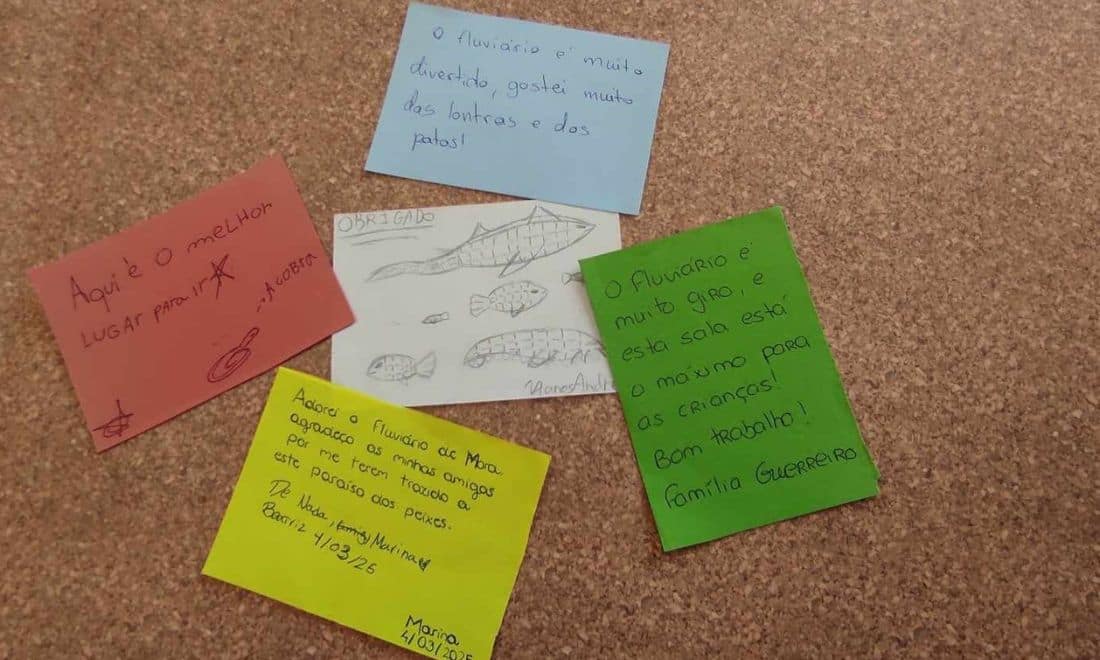 O fluviário é muito
divertido, gostei muito
das lontras e dos
patos!
Aqui é o melhor
LUGAR para ir
A COBRA
OBRIGADO
O Fluviário é
muito giro, e
esta sala está
o máximo para
as crianças!
Bom trabalho!
Família Guerreiro
Adorei o Fluviário de Mora
agradeço as minhas amigas
por me terem trazido a
este paraíso dos peixes.
De Nada, family Marina
4/03/25
Marina
4/03/2025